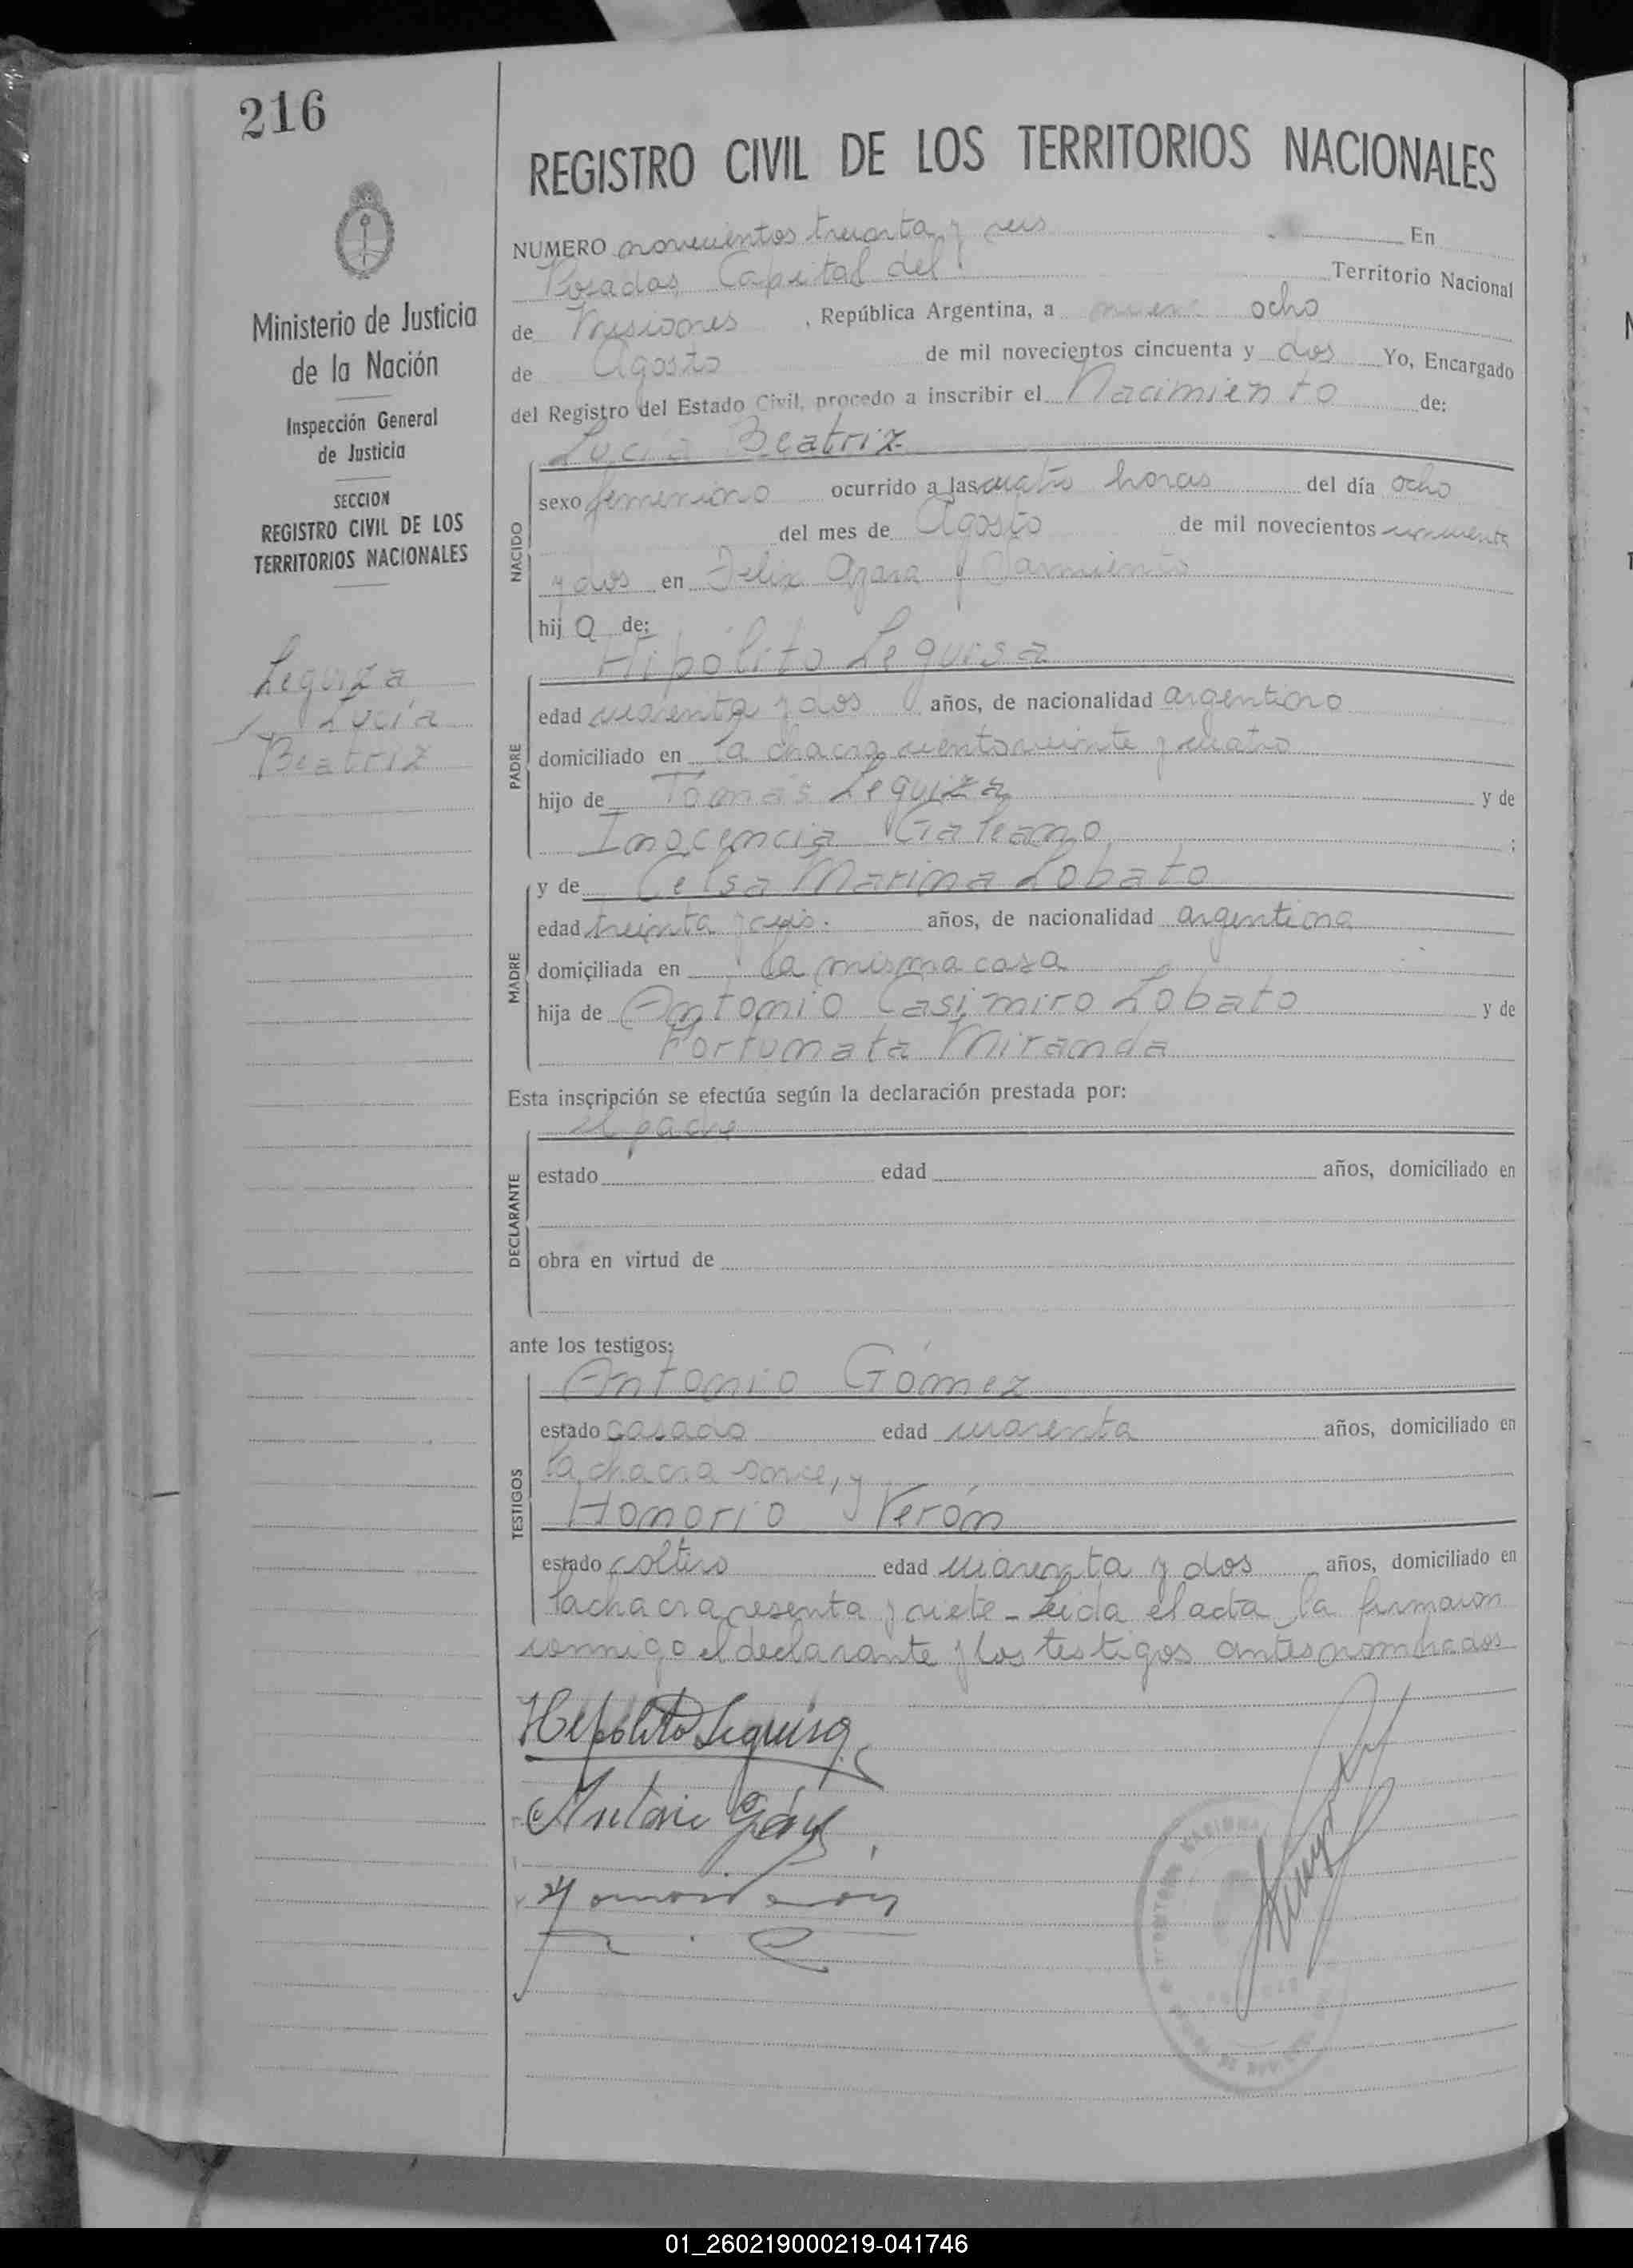 216
REGISTRO CIVIL DE LOS TERRITORIOS NACIONALES
Ministerio de Justicia
de la Nación
Inspección General
de Justicia
SECCION
REGISTRO CIVIL DE LOS
TERRITORIOS NACIONALES
Leguiza
Lucía
Beatriz
NUMERO novecientos treinta y seis En
Posadas Capital del Territorio Nacional
de Misiones, República Argentina, a ocho
de Agosto de mil novecientos cincuenta y dos Yo, Encargado
del Registro del Estado Civil, procedo a inscribir el Nacimiento de:
Lucía Beatriz
NACIDO
sexo femenino ocurrido a las cuatro horas del día ocho
del mes de Agosto de mil novecientos cincuenta
y dos en Felix Azara y Sarmiento
hij a de:
Hipólito Leguisa
PADRE
edad cuarenta y dos años, de nacionalidad argentino
domiciliado en la chacra ciento veinte y cuatro
hijo de Tomás Leguiza y de
Inocencia Galeano;
y de Celsa Marina Lobato
MADRE
edad treinta y seis. años, de nacionalidad argentina
domiciliada en la misma casa
hija de Antonio Casimiro Lobato y de
Fortunata Miranda
Esta inscripción se efectúa según la declaración prestada por:
el padre
DECLARANTE
estado edad años, domiciliado en
obra en virtud de
ante los testigos:
Antonio Gómez
TESTIGOS
estado casado edad cuarenta años, domiciliado en
la chacra once, y
Honorio Verón
estado soltero edad cuarenta y dos años, domiciliado en
la chacra sesenta y siete - Leida el acta la firmaron
conmigo el declarante y los testigos antes nombrados
Hipólito Leguisa
Antonio
01_260219000219-041746